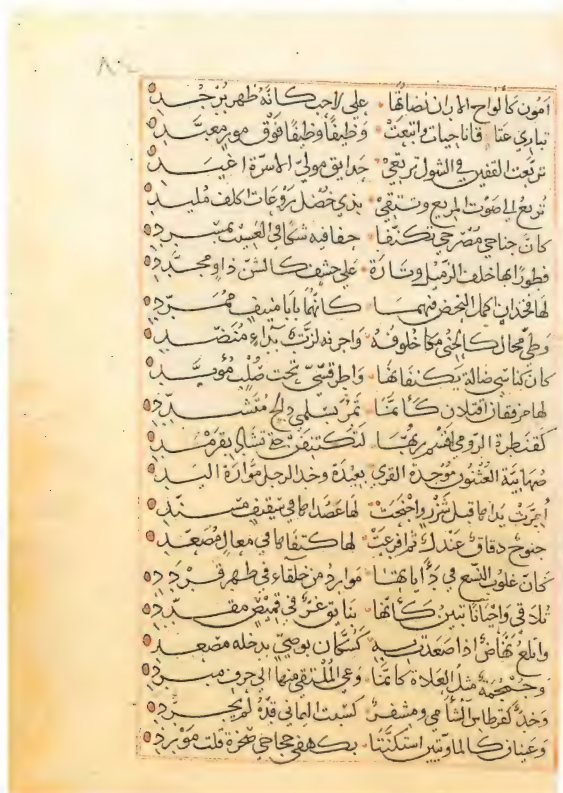 امون كألواح الاران نصأتها على لاحب كأنه ظهر برجد
تباري عتاقا ناجيات واتبعت وظيفا وظيفا فوق مور معبد
تربعت القفين في الشول ترتعي حدايق مولي الاسرة اغيد
تريع الى صوت المهيب وتتقي بذي خصل روعات اكلف ملبد
كان جناحي مضرحي تكنفا حفافيه شكا في العسيب بمسرد
فطورا بها خلف الزميل وتارة على حشف كالشن ذاو مجدد
لها فخذان اكمل النحض فيهما كانهما بابا منيف ممرد
وطي محال كالحني خلوفه واجرنه لزت بدأي منضد
كان كناسي ضالة يكنفانها واطر قسي تحت صلب مؤيد
لها مرفقان افتلان كانما تمر بسلمي دالج متشدد
كقنطرة الرومي اقسم ربها لتكتنفن حتى تشاد بقرمد
صهابية العثنون موجدة القرى بعيدة وخد الرجل موارة اليد
امرت يداها فتل شزر واجنحت لها عضداها في سقيف مسند
جنوح دفاق عندل ثم افرعت لها كتفاها في معالى مصعد
كان علوب النسع في دأياتها موارد من خلقاء في ظهر قردد
تلاقى واحيانا تبين كأنها بنايق غر في قميص مقدد
واتلع نهاض اذا صعدت به كسكان بوصي بدجلة مصعد
وجمجمة مثل العلاة كانما وعى الملتقى منها الى حرف مبرد
وخد كقرطاس الشآمي ومشفر كسبت اليماني قده لم يجرد
وعينان كالماويتين استكنتا بكهفي حجاجي صخرة قلت مورد